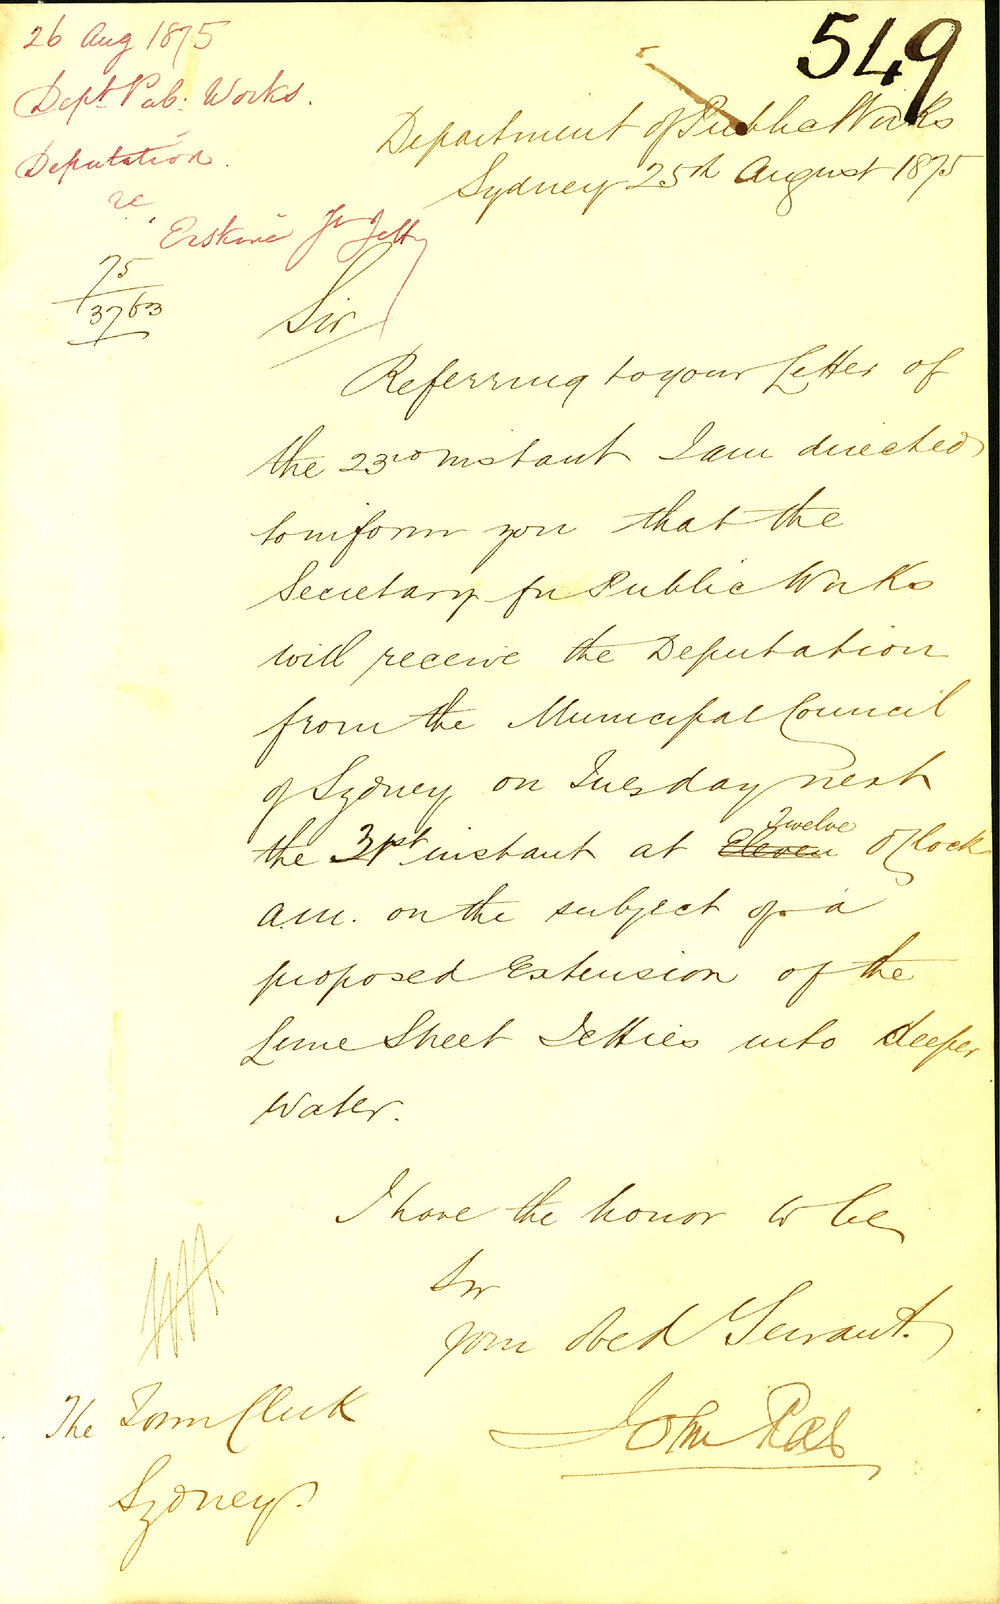 549
26 Aug 1875
Dept Pub: Works.
Deputation.
re
"Erskine St Jetty
75
3763
Department of Public Works
Sydney 25th August 1875
Sir
Referring to your Letter of
the 23rd instant I am directed
to inform you that the
Secretary for Public Works
will receive the Deputation
from the Municipal Council
of Sydney on Tuesday next
the 31st instant at Eleven Twelve O'Clock
a.m. on the subject of a
proposed Extension of the
Lime Street Jetties into deeper
Water.
I have the honor to be
Sir
your obed Servant.
John Rae
The Town Clerk
Sydney.